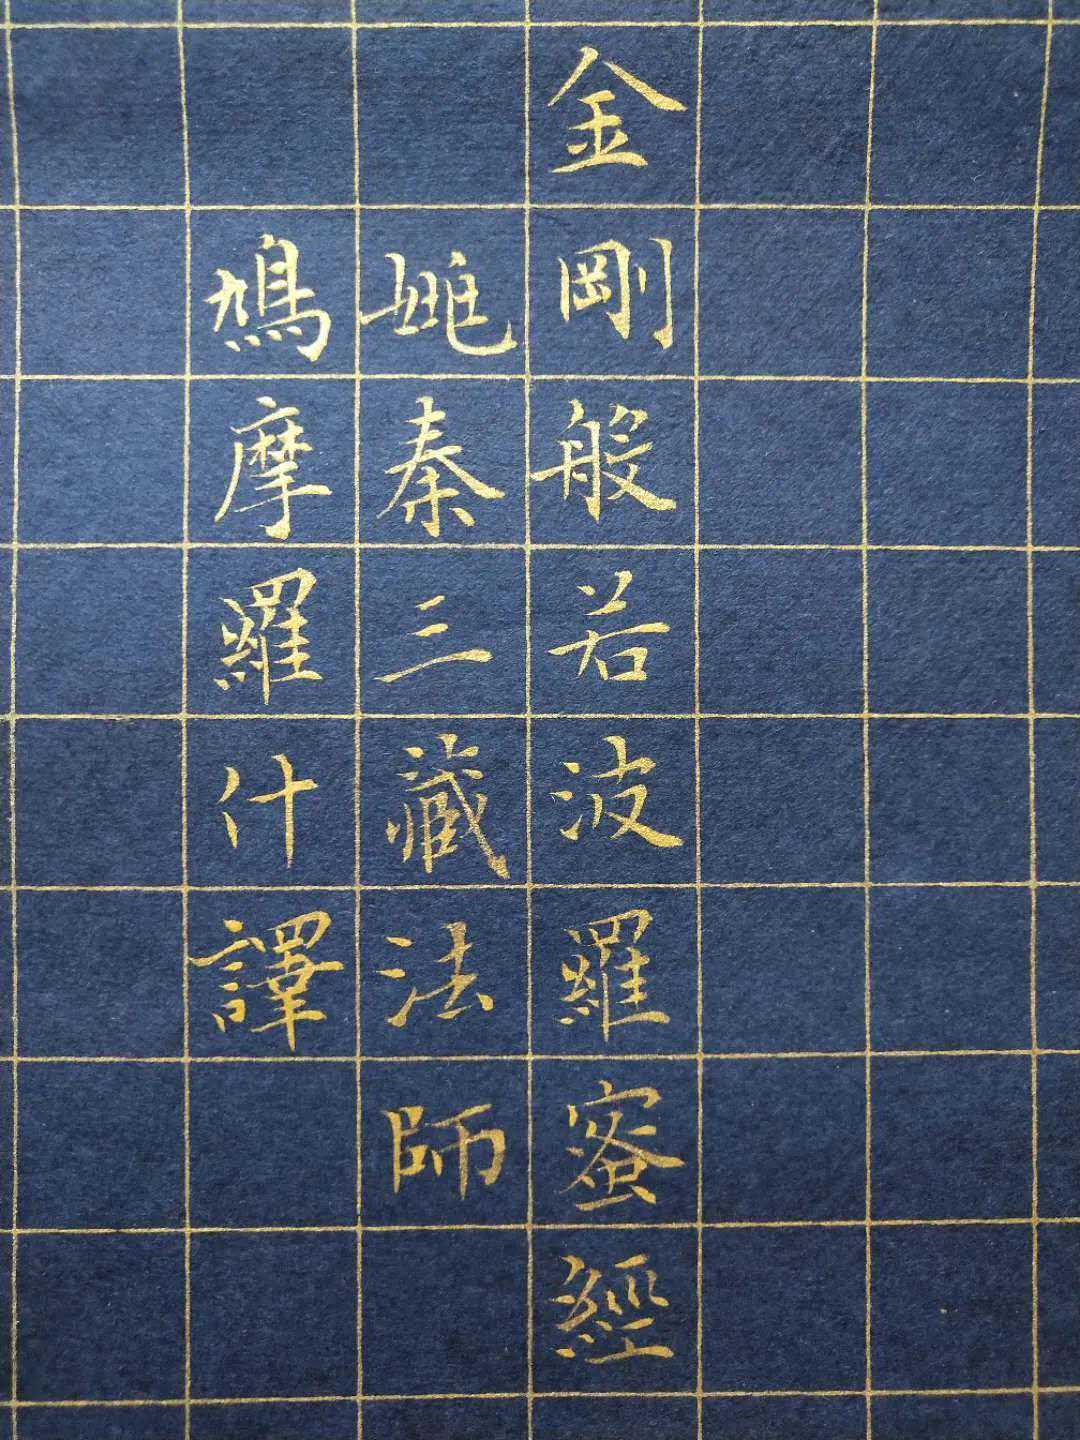 金剛般若波羅蜜經
姚秦三藏法師
鳩摩羅什譯